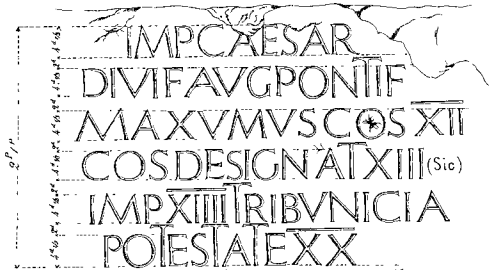 IMPCAESAR
DIVIFAVGPONTIF
MAXVMVSCOSXII
COSDESIGNATXIII (Sic)
IMPXIIIITRIBVNICIA
POTESTATEXX